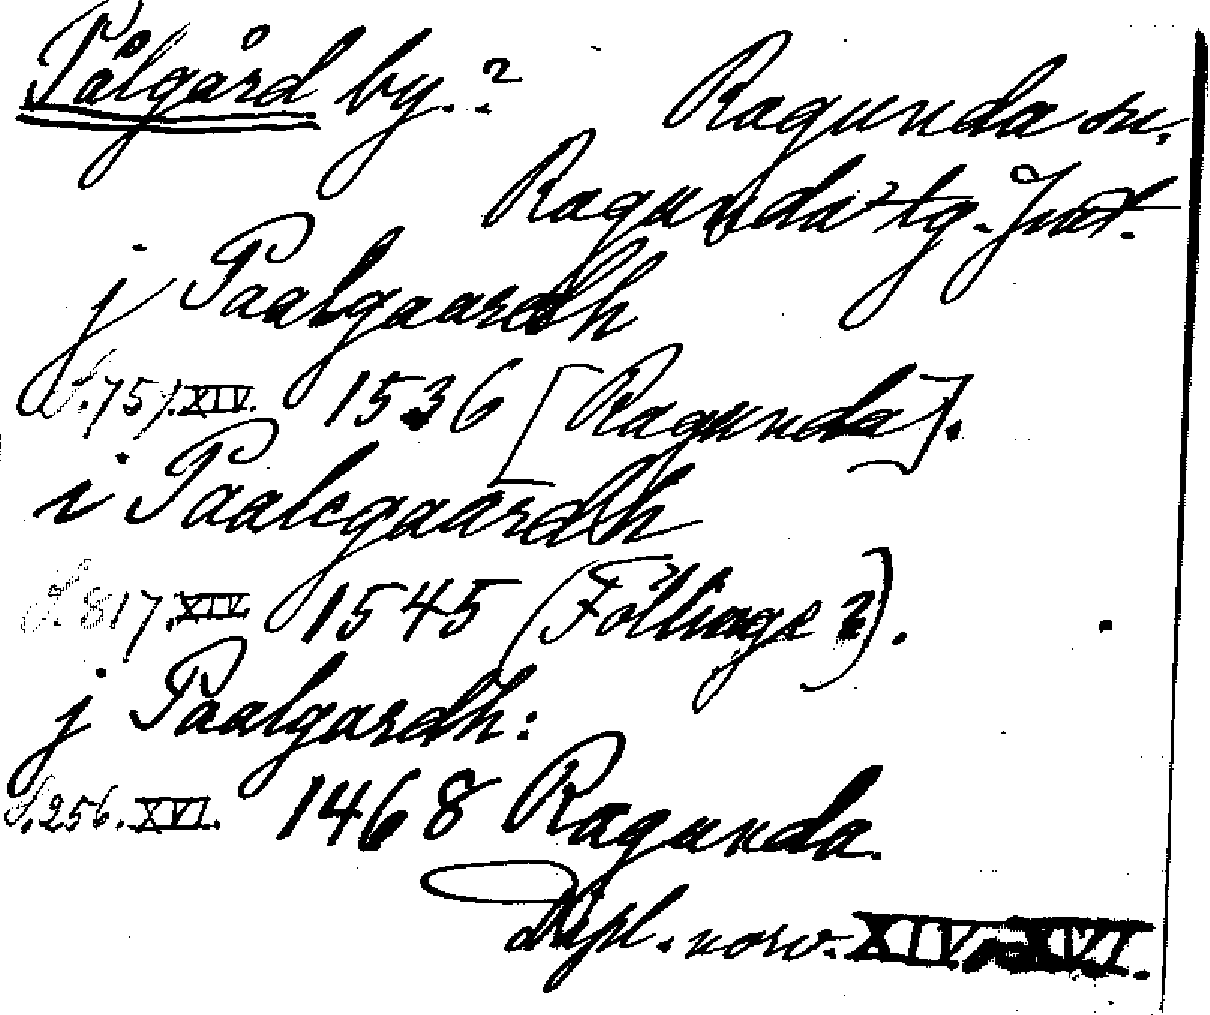 Pålgård by.? Ragunda sn.
Ragunda tg. Jmt.
j Paalgaardh
S. 757. XIV. 1536 [Ragunda].
i Paalegaardh
S. 817. XIV. 1545 (Föllinge?).
j Paalgardh:
S. 256. XVI. 1468 Ragunda.
Dipl. norv. XIV. o XVI.